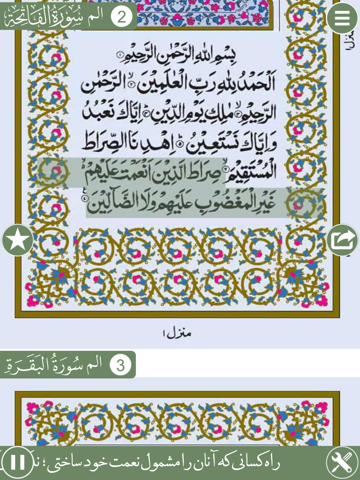 2 الم سُورَةُ الْفَاتِحَةِ
بِسْمِ اللهِ الرَّحْمٰنِ الرَّحِيْمِ
اَلْحَمْدُ لِلّٰهِ رَبِّ الْعٰلَمِيْنَ الرَّحْمٰنِ
الرَّحِيْمِ مٰلِكِ يَوْمِ الدِّيْنِ اِيَّاكَ نَعْبُدُ
وَاِيَّاكَ نَسْتَعِيْنُ اِهْدِنَا الصِّرَاطَ
الْمُسْتَقِيْمَ صِرَاطَ الَّذِيْنَ اَنْعَمْتَ عَلَيْهِمْ
غَيْرِ الْمَغْضُوْبِ عَلَيْهِمْ وَلَا الضَّآلِّيْنَ
منزل ۱
3 الم سُورَةُ الْبَقَرَةِ
راه کسانی که آنان را مشمول نعمت خود ساختی؛ نه